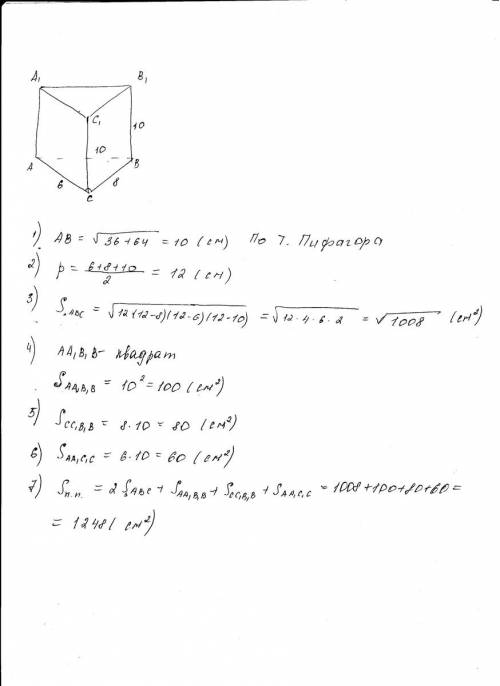 A₁ B₁
C₁
10
10
A B
6 8
C
1) AB = √36+64 = 10 (см) по т. Пифагора
2) p = 6+8+10/2 = 12 (см)
3) S ABC = √12(12-8)(12-6)(12-10) = √12·4·6·2 = √1008 (см²)
4) AA₁B₁B - квадрат
S AA₁B₁B = 10² = 100 (см²)
5) S CC₁B₁B = 8·10 = 80 (см²)
6) S AA₁C₁C = 6·10 = 60 (см²)
7) S п.п. = 2 S ABC + S AA₁B₁B + S CC₁B₁B + S AA₁C₁C = 1008+100+80+60=
= 1248 ( см²)